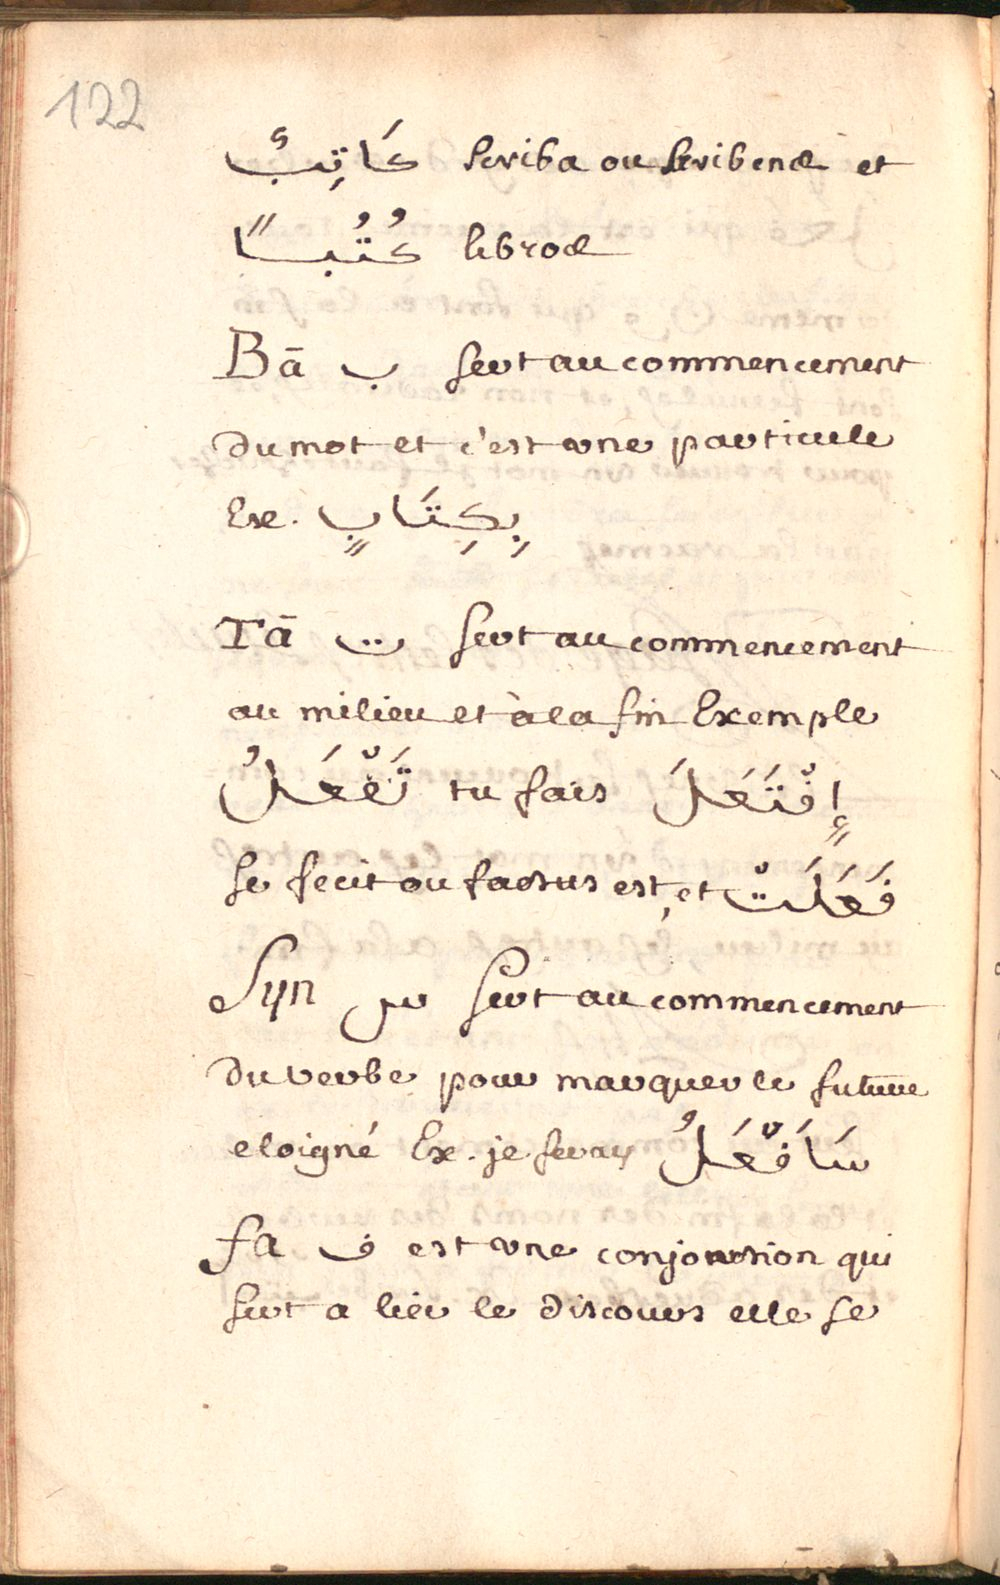 122
كَاتِبٌ scriba ou scribens et
كُتُبًا libros
Bā ب sert au commencement
du mot et c'est vne particule
Ex. بِكِتَابٍ
Tā ت sert au commencement
au milieu et à la fin Exemple
تَفْعَلُ tu fais إِفْتَعَلَ
se fecit ou factus est, et فَعَلَتْ
Syn س sert au commencement
du verbe pour marquer le future
eloigné Ex. je feray سَافْعَلُ
fa ف est vne conjonction qui
sert a lier le discours elle se